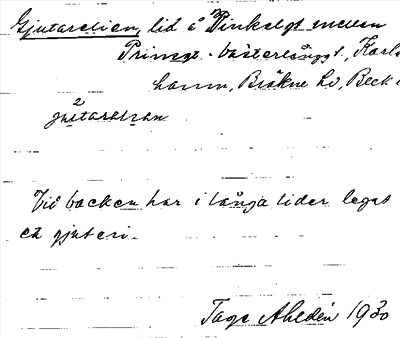 Gjutarelien, lid å Vinkelgt mellan
Prinsgt - Västerlånggt., Karls
hamn, Bräkne hd, Bleck
2
gjutarelian
Vid backen har i långa tider legat
ett gjuteri.
Tage Ahldén 1930